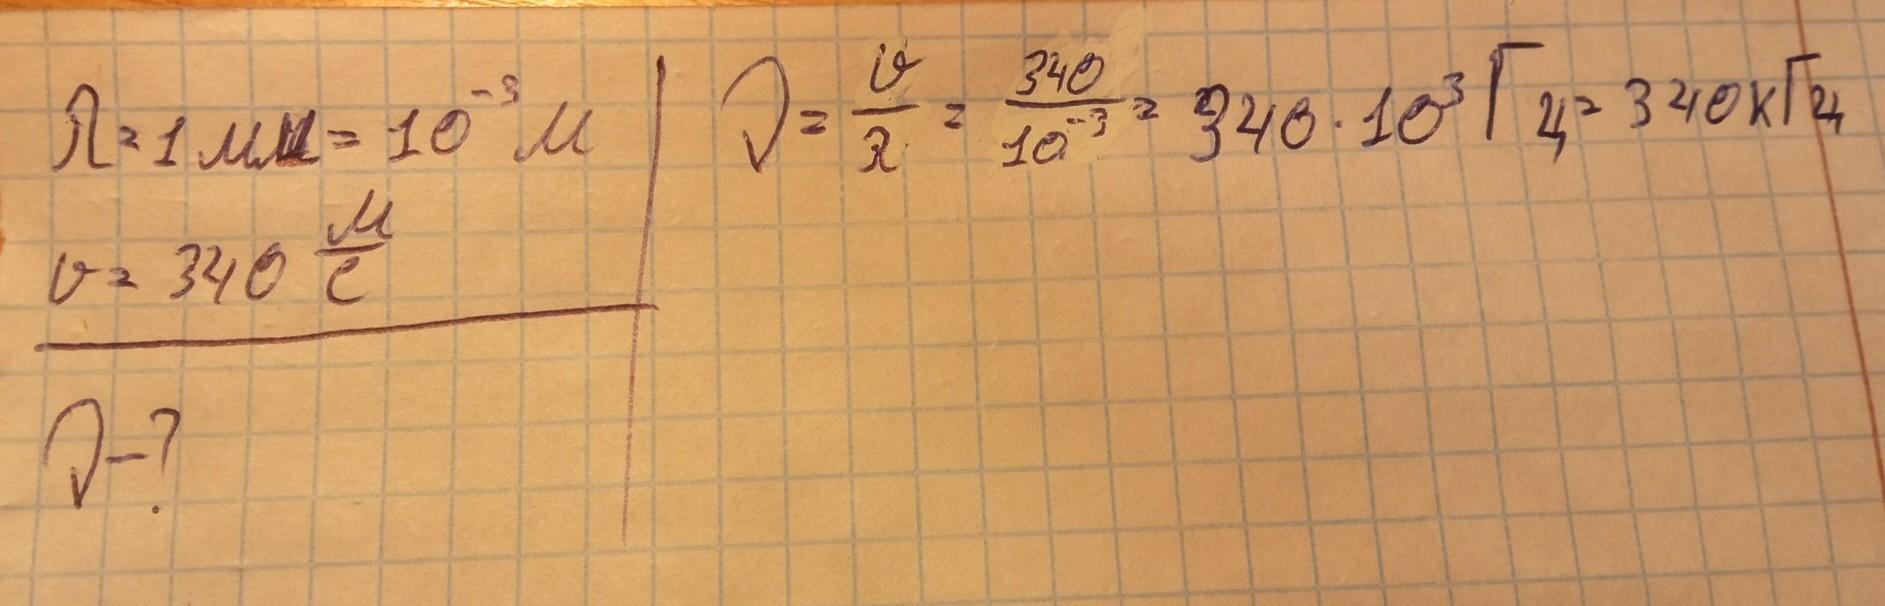 λ = 1 мм = 10⁻³ м
υ = 340 м/с
ν - ?
ν = υ/λ = 340/10⁻³ = 340 · 10³ Гц = 340 кГц